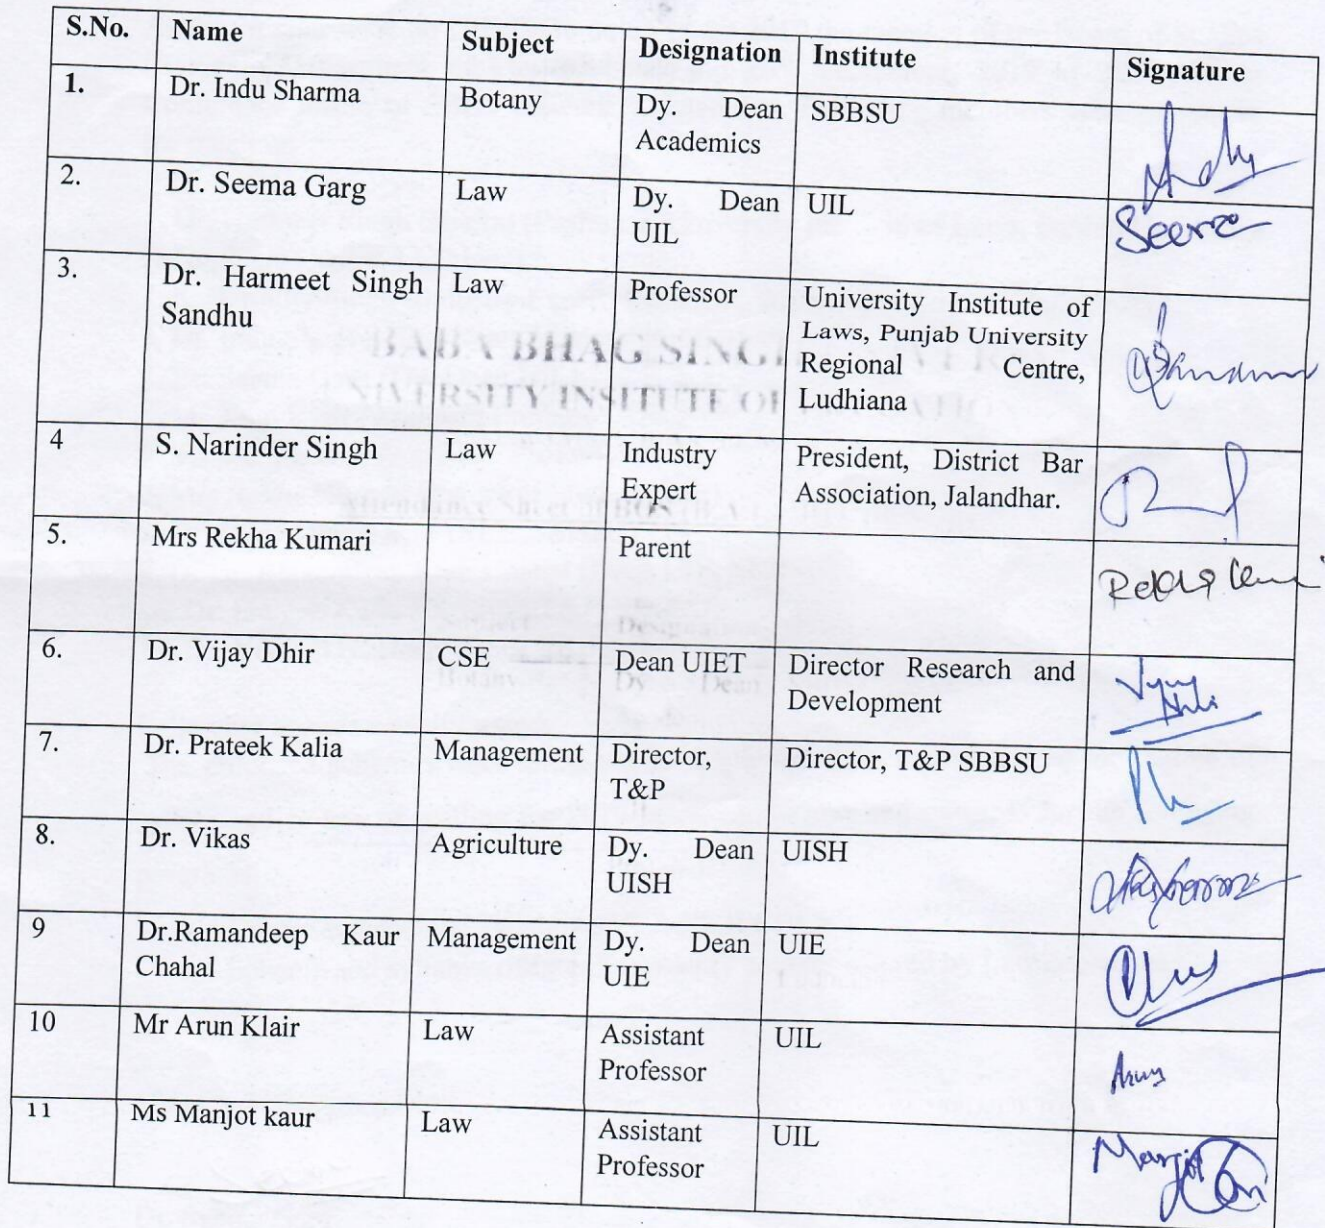 S.No. Name Subject Designation Institute Signature
1. Dr. Indu Sharma Botany Dy. Dean SBBSU
Academics
2. Dr. Seema Garg Law Dy. Dean UIL
UIL
3. Dr. Harmeet Singh Law Professor University Institute of
Sandhu Laws, Punjab University
Regional Centre,
Ludhiana
4 S. Narinder Singh Law Industry President, District Bar
Expert Association, Jalandhar.
5. Mrs Rekha Kumari Parent
6. Dr. Vijay Dhir CSE Dean UIET Director Research and
Development
7. Dr. Prateek Kalia Management Director, Director, T&P SBBSU
T&P
8. Dr. Vikas Agriculture Dy. Dean UISH
UISH
9 Dr.Ramandeep Kaur Management Dy. Dean UIE
Chahal UIE
10 Mr Arun Klair Law Assistant UIL
Professor
11 Ms Manjot kaur Law Assistant UIL
Professor